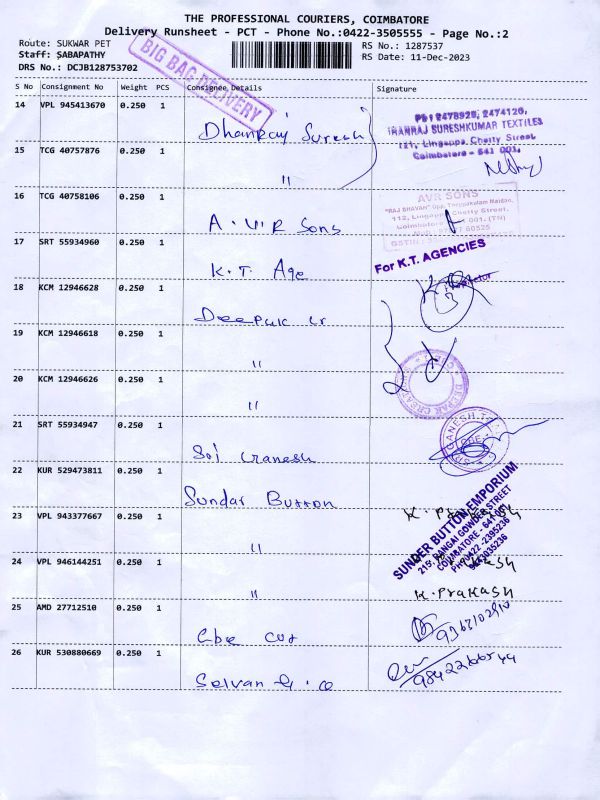 THE PROFESSIONAL COURIERS, COIMBATORE
Delivery Runsheet - PCT - Phone No.:0422-3505555 - Page No.:2
Route: SUKWAR PET
Staff: SABAPATHY
DRS No.: DCJB128753702
RS No.: 1287537
RS Date: 11-Dec-2023
BIG BAG DELIVERY
S No Consignment No Weight PCS Consignee Details Signature
14 VPL 945413670 0.250 1
Dhanraj Suresh
PH: 2478925, 2474126,
DHANRAJ SURESHKUMAR TEXTILES
121, Lingappa Chetty Street
Coimbatore - 641 001.
15 TCG 40757876 0.250 1
"
16 TCG 40758106 0.250 1
A.V.R Sons
AVR SONS
"RAJ BHAVAN" Opp. Theppakulam Maidan,
112, Lingappa Chetty Street,
Coimbatore 001. (TN)
60525
GSTIN:
17 SRT 55934960 0.250 1
K.T. Age
For K.T. AGENCIES
Proprietor
18 KCM 12946628 0.250 1
Deepak cr
19 KCM 12946618 0.250 1
"
20 KCM 12946626 0.250 1
"
DEEPAK CREATIONS
21 SRT 55934947 0.250 1
Sri Ganesh
GANESH
22 KUR 529473811 0.250 1
Sundar Button
SUNDER BUTTON EMPORIUM
215, RANGAI GOWDER STREET
COIMBATORE - 641 001
PH: 0422-2395236
K. Prakash
23 VPL 943377667 0.250 1
"
24 VPL 946144251 0.250 1
"
K. Prakash
25 AMD 27712510 0.250 1
Cbe Cut
26 KUR 530880669 0.250 1
Selvan & Co